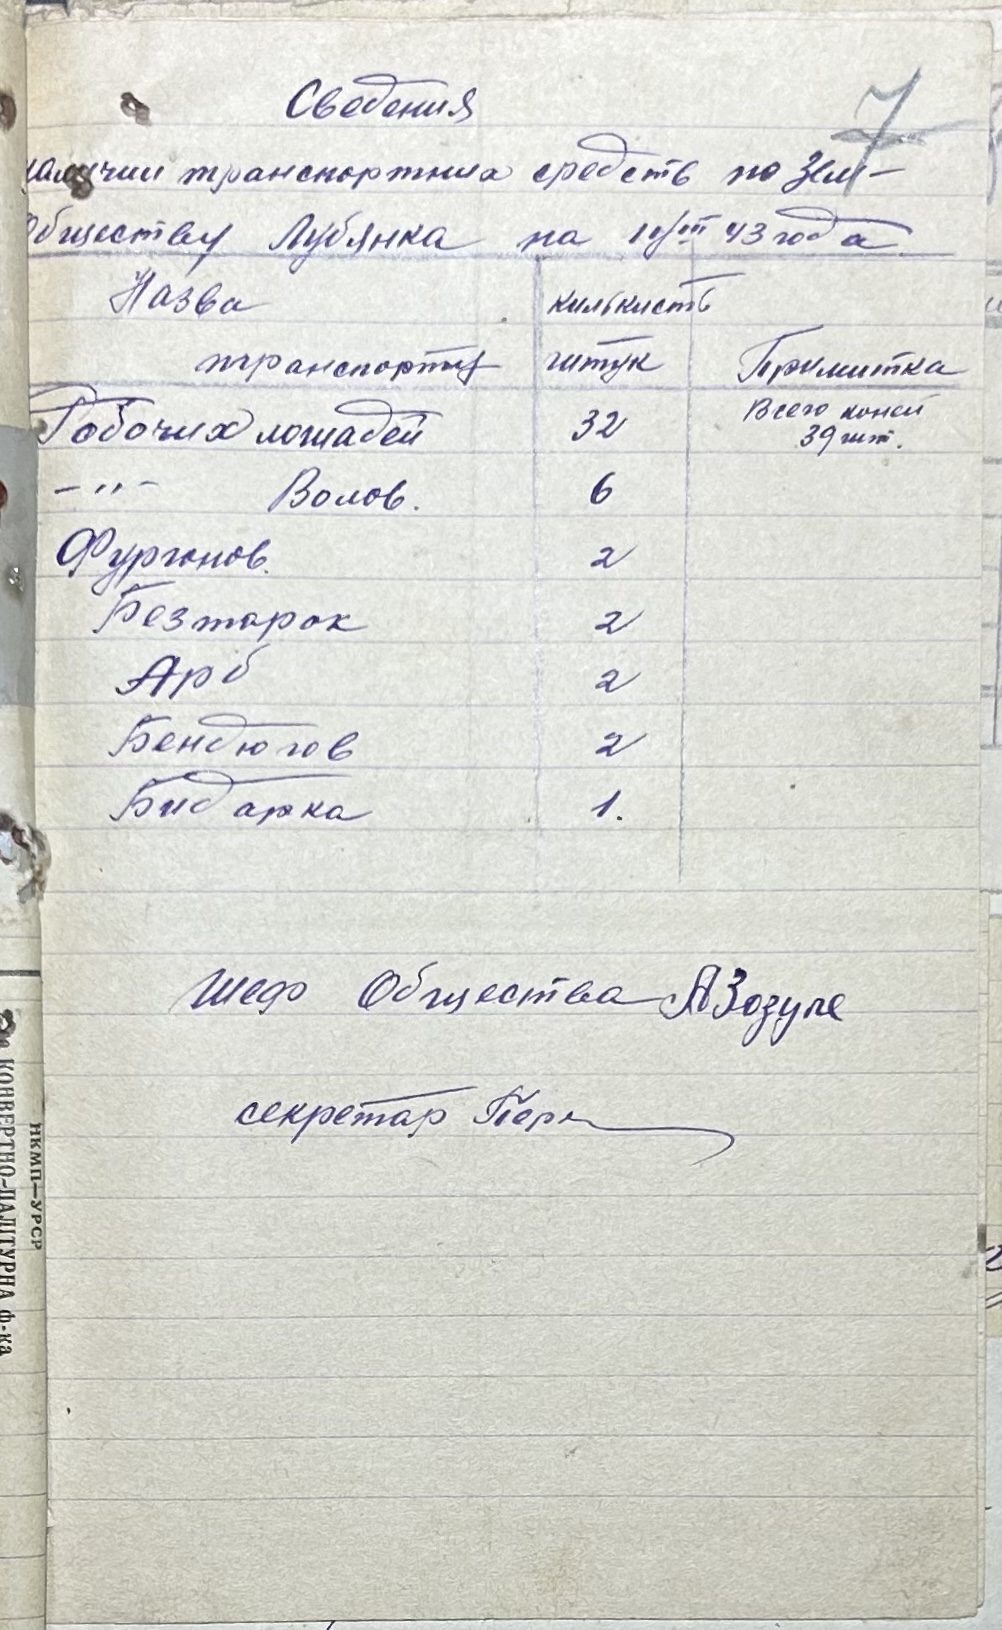 7
Сведения
наличии транспортних средств по Зем-
Обществу Лубянка на 10/III 43 года
Назва
транспорту
килькисть
штук
Примитка
Робочих лошадей 32 Всего коней
39 шт.
-"- Волов. 6
Фургонов. 2
Безтарок 2
Арб 2
Бендюгов 2
Бидарка 1.
Шеф Общества АЗозуле
секретар
НКМП—УРСР
КОНВЕРТНО-ПАЛІТУРНА Ф-ка